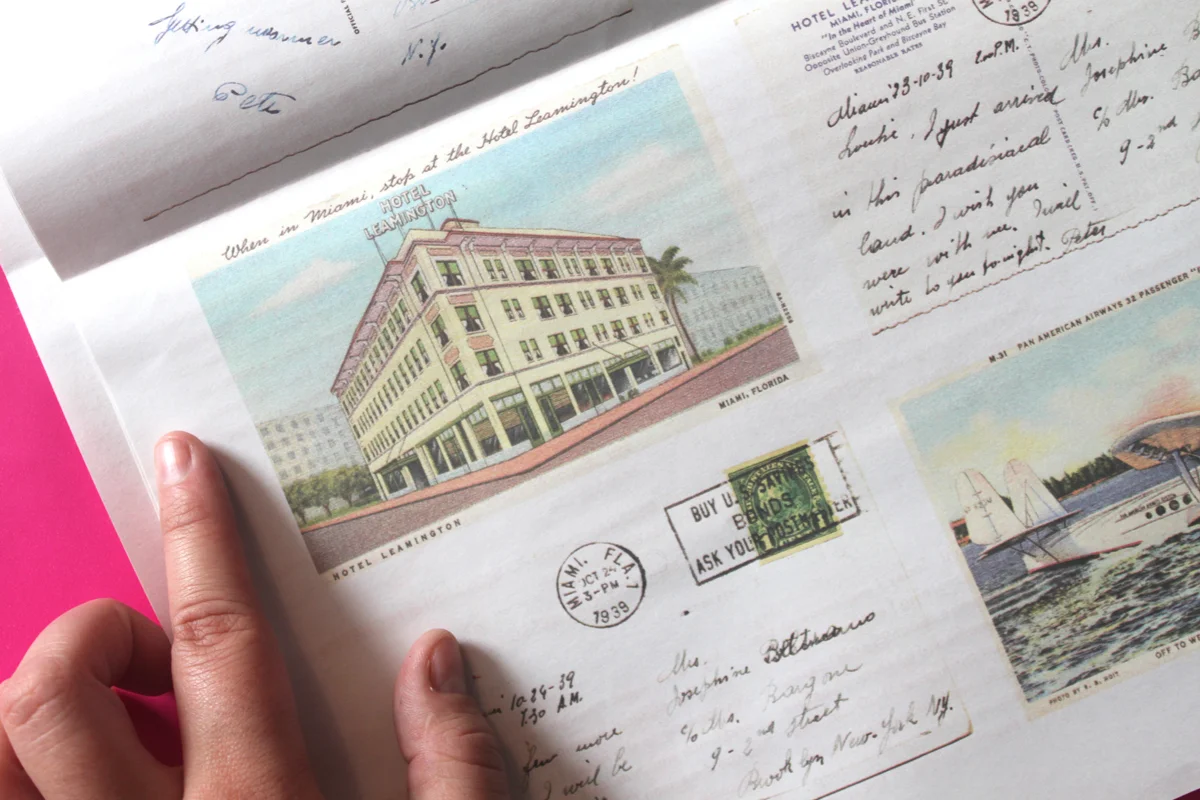 Getting warmer
Pete
OFFICIAL
N.Y.
When in Miami, stop at the Hotel Leamington!
HOTEL
LEAMINGTON
HOTEL LEAMINGTON
MIAMI, FLORIDA
HOTEL LEA
MIAMI, FLORIDA
"In the Heart of Miami"
Biscayne Boulevard and N.E. First St.
Opposite Union-Greyhound Bus Station
Overlooking Park and Biscayne Bay
REASONABLE RATES
1939
Miami 23-10-39 P.M.
I just arrived
in this paradisiacal
land. I wish you
were with me. I will
write to you tonight. Peter
Mrs.
Josephine
c/o Mrs.
9-2nd
M-31 PAN AMERICAN AIRWAYS 32 PASSENGER
OFF TO
BUY U.
SAVI
BONDS
ASK YOUR POSTMASTER
MIAMI, FLA. 7
OCT 24
3-PM
1939
10-24-39
7.30 A.M.
few more
I will be
Mrs.
Josephine
c/o Mrs.
9-2nd Street
Brooklyn New-York N.Y.